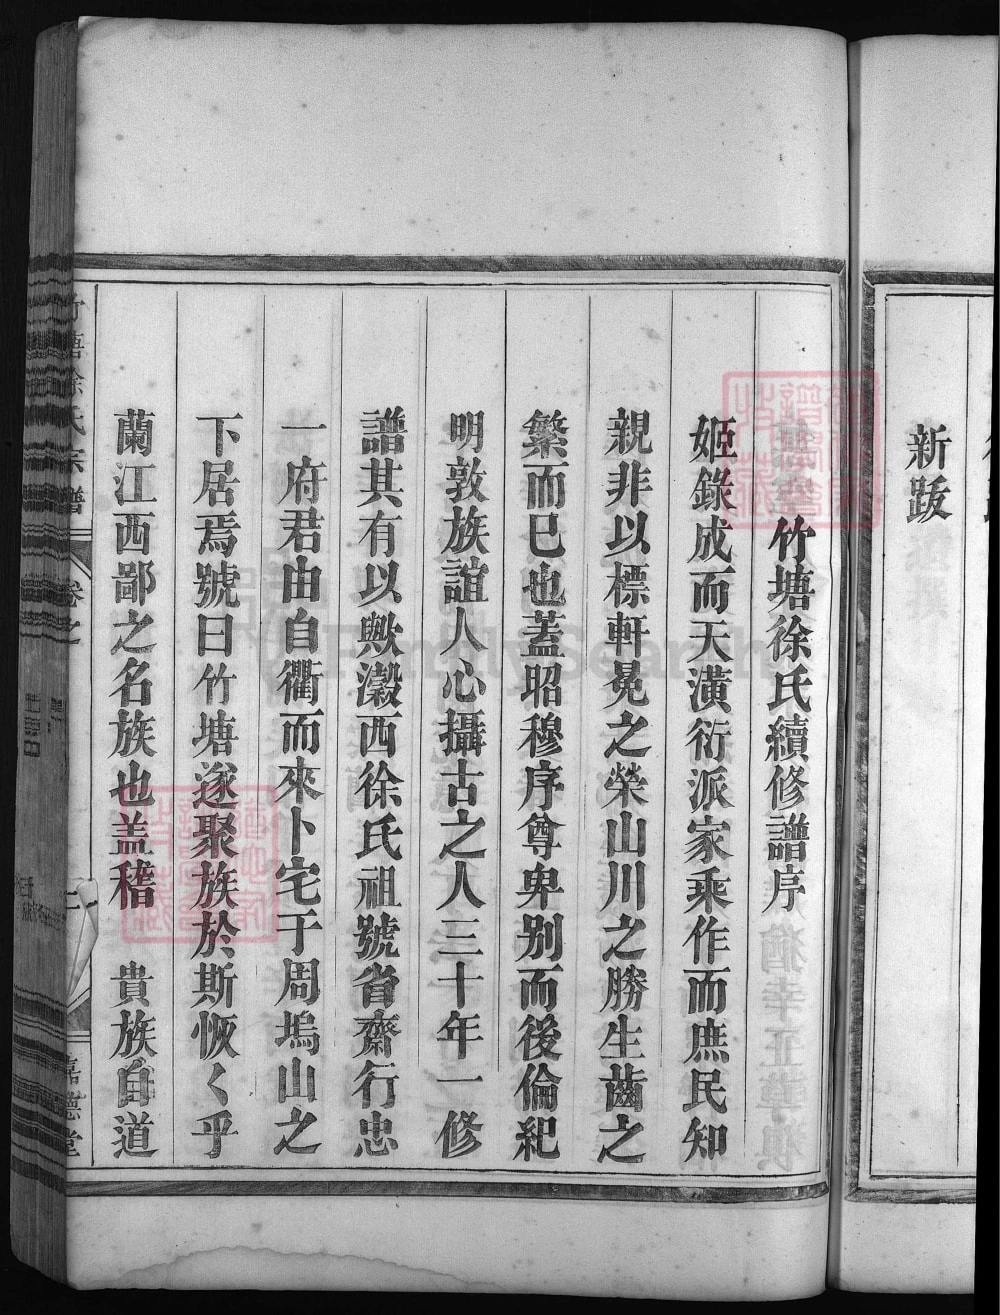 新跋
竹塘徐氏續修譜序
姬錄成而天潢衍派家乘作而庶民知
親非以標軒冕之榮山川之勝生齒之
繁而已也蓋昭穆序尊卑別而後倫紀
明敦族誼人心攝古之人三十年一修
譜其有以歟瀔西徐氏祖號省齋行忠
一府君由自衢而來卜宅于周塢山之
下居焉號曰竹塘遂聚族於斯恢々乎
蘭江西鄙之名族也盖稽 貴族自道
竹塘徐氏宗譜 卷之 嘉德堂
FamilySearch